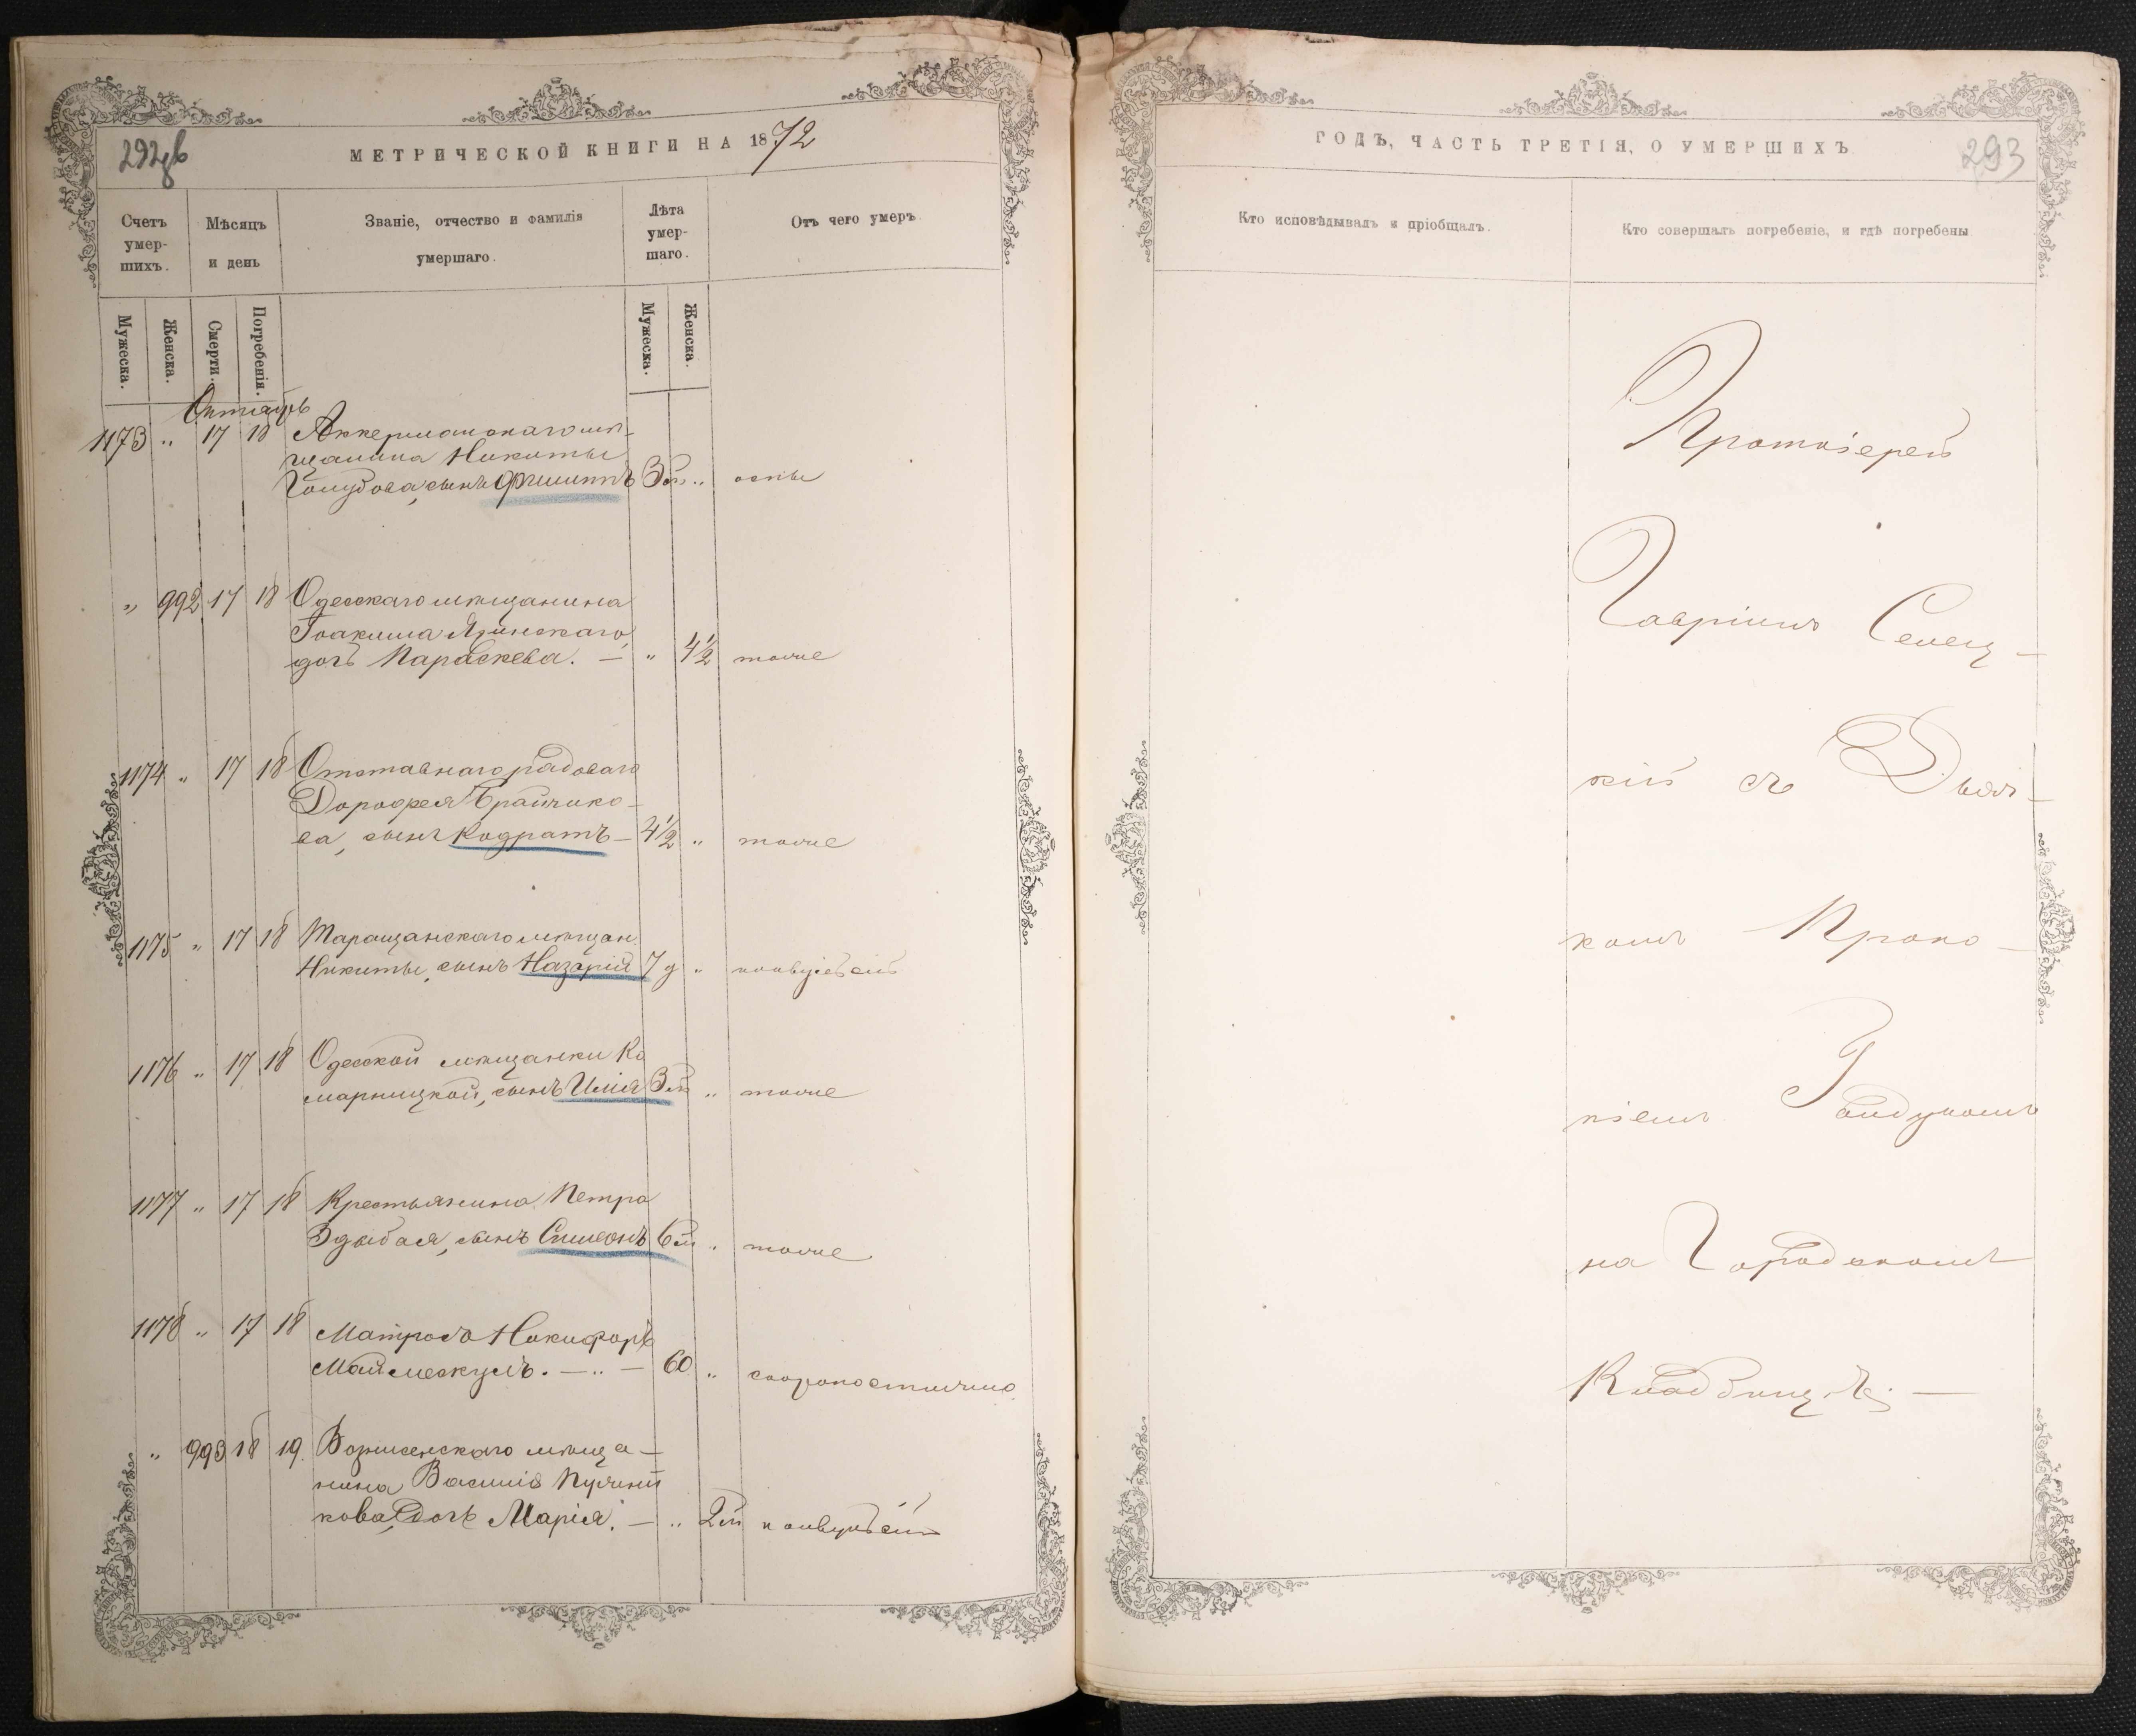 292об
МЕТРИЧЕСКОЙ КНИГИ НА 1872
Счетъ умер-шихъ.
Мѣсяцъ и день
Званіе, отчество и фамилія умершаго.
Лѣта умер-шаго.
Отъ чего умеръ
Мужеска.
Женска.
Смерти.
Погребенія.
Мужеска.
Женска.
Октябрь
1173 „ 17 18 Аккерманскаго мѣ-
щанина Никиты
Голубова, сынъ Филиппъ 3 м „ оспы
„ 992 17 18 Одесскаго мѣщанина
Іоакима
дочь Параскева. — „ 4½ тоже
1174 „ 17 18 Отставнаго рядоваго
Дорофея Брайчико-
ва, сынъ Кодратъ — 4½ „ тоже
1175 „ 17 18 Таращанскаго мѣщан.
Никиты, сынъ Назарій 7 д „ конвульсій
1176 „ 17 18 Одесской мѣщанки Ко
марницкой, сынъ Илія 3 м „ тоже
1177 „ 17 18 Крестьянина Петра
Здыбая, сынъ Симеонъ 6 м „ тоже
1178 „ 17 18 Матросъ Никифоръ
Маймескулъ. — „ — 60 „ скоропостижно
„ 993 18 19. Вознесенскаго мѣща-
нина Василія
кова, дочь Марія. — „ 2 м конвульсій
ГОДЪ, ЧАСТЬ ТРЕТІЯ, О УМЕРШИХЪ
293
Кто исповѣдывалъ и пріобщалъ.
Кто совершалъ погребеніе, и гдѣ погребены
Протоіерей
Гавріилъ Селец-
кій съ Дьяч-
комъ Проко-
піемъ
на Городскомъ
Кладбищѣ. —